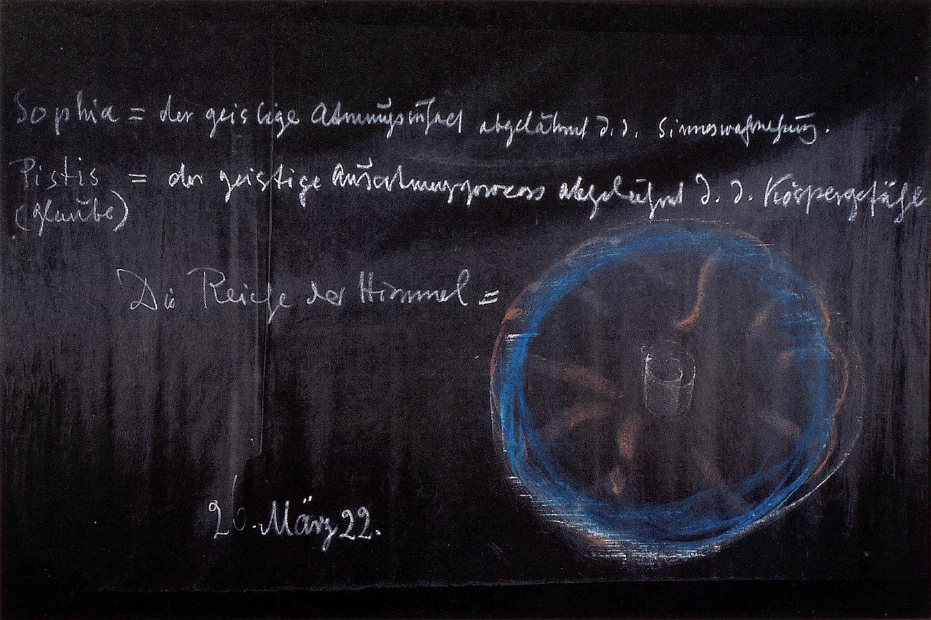 Sophia = der geistige Atmungsinhalt abgelähmt d. d. Sinneswahrnehmung.
Pistis = der geistige Ausatmungsprocess abgelähmt d. d. Körpergefühl
(Glaube)
Die Reiche der Himmel =
26. März 22.